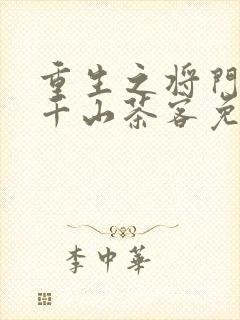 重生之将门
千山茶客免
李中華